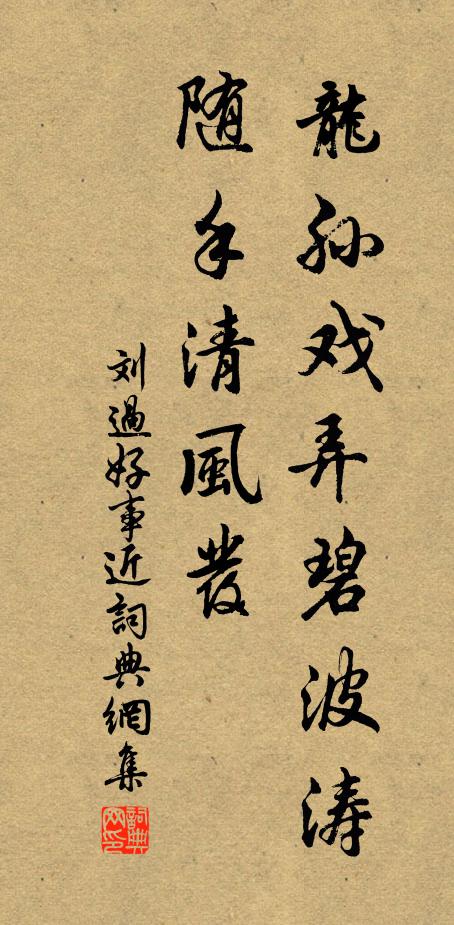 龍孙戏弄碧波涛
随手清風發
刘過好事近詞典網集
詞典网印